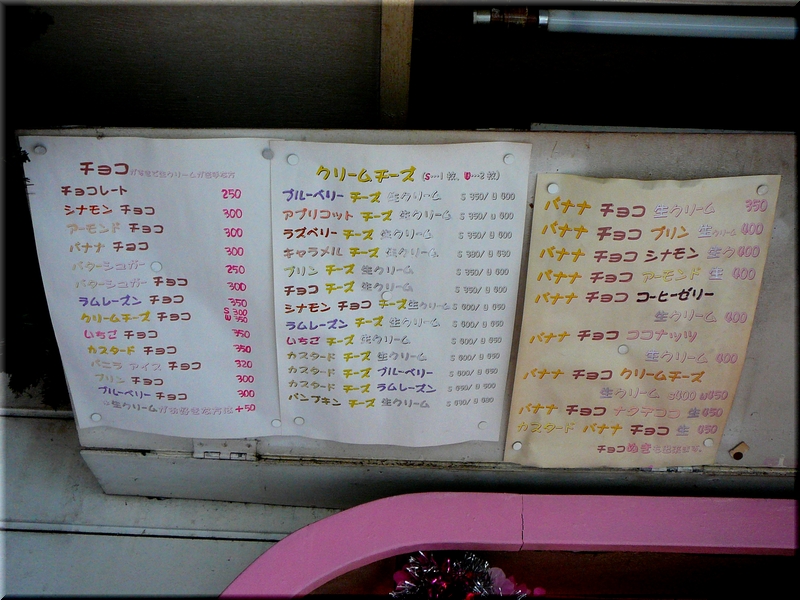 チョコ
チョコレート 250
シナモン チョコ 300
アーモンド チョコ 300
バナナ チョコ 300
バターシュガー 250
バターシュガー チョコ 300
ラムレーズン チョコ 350
クリームチーズ チョコ S 300 W 350
いちご チョコ 350
カスタード チョコ 350
バニラ アイス チョコ 320
プリン チョコ 300
ブルーベリー チョコ 300
+50
クリームチーズ (S…1枚、W…2枚)
ブルーベリー チーズ 生クリーム S 350/ W 400
アプリコット チーズ 生クリーム S 350/ W 400
ラズベリー チーズ 生クリーム S 350/ W 400
キャラメル チーズ 生クリーム S 350/ W 400
プリン チーズ 生クリーム S 350/ W 400
チョコ チーズ 生クリーム S 350/ W 400
シナモン チョコ チーズ 生クリーム
ラムレーズン チーズ 生クリーム
いちご チーズ 生クリーム
カスタード チーズ 生クリーム
カスタード チーズ ブルーベリー
カスタード チーズ ラムレーズン
パンプキン チーズ 生クリーム
バナナ チョコ 生クリーム 350
バナナ チョコ プリン 生クリーム 400
バナナ チョコ シナモン 生ク 400
バナナ チョコ アーモンド 生 400
バナナ チョコ コーヒーゼリー
生クリーム 400
バナナ チョコ ココナッツ
生クリーム 400
バナナ チョコ クリームチーズ
生クリーム S400 W450
バナナ チョコ ナタデココ 生 450
カスタード バナナ チョコ 生 450
チョコぬき